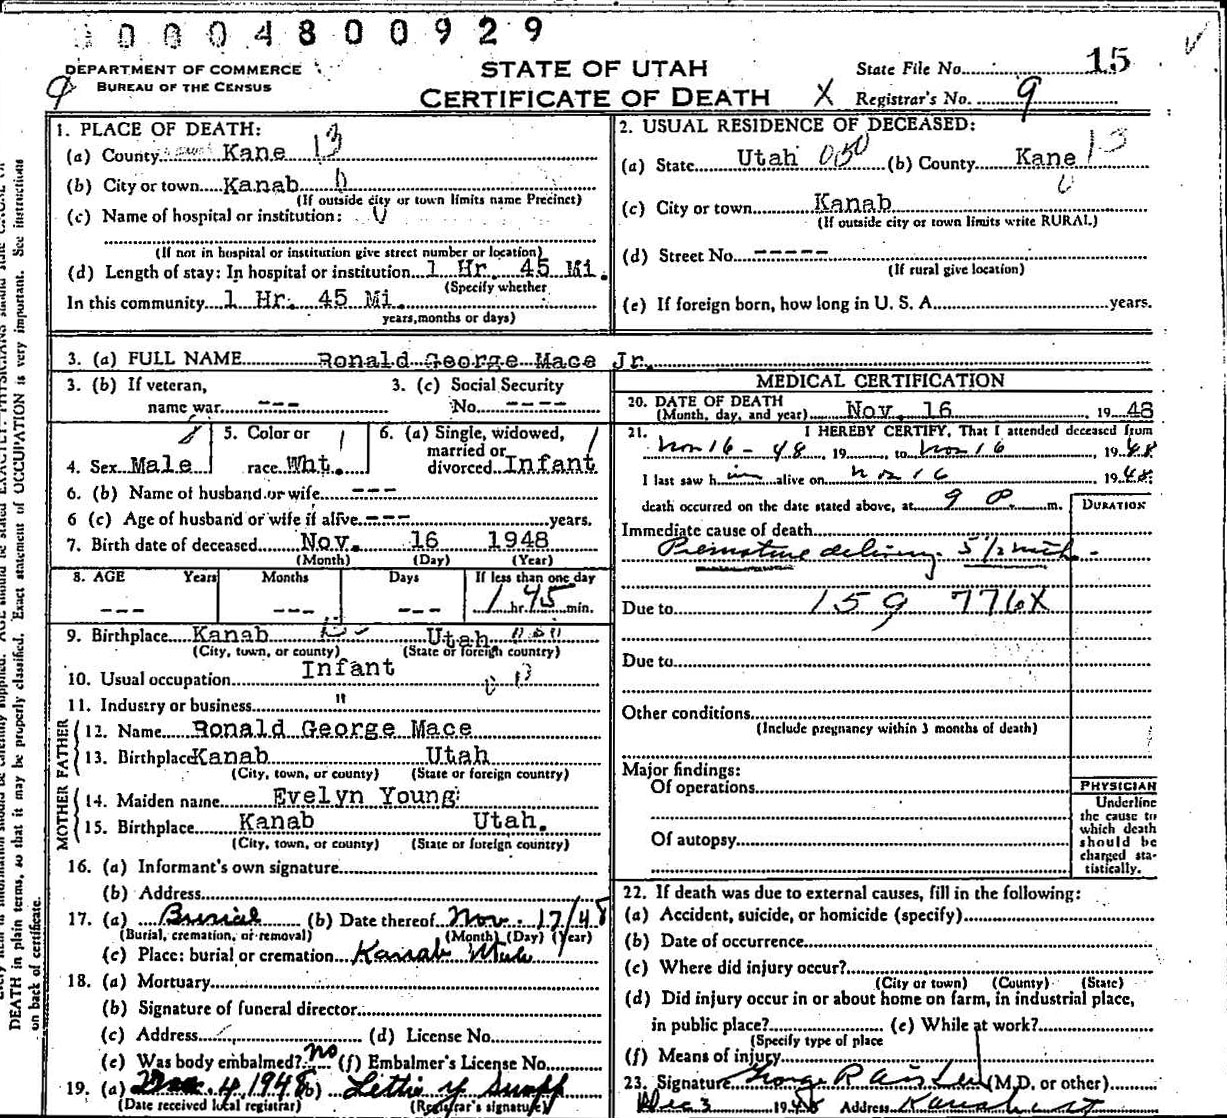 0004800929
DEPARTMENT OF COMMERCE
BUREAU OF THE CENSUS
STATE OF UTAH
CERTIFICATE OF DEATH
X
State File No. 15
Registrar's No. 9
9
1. PLACE OF DEATH:
(a) County Kane 13
(b) City or town Kanab 0
(If outside city or town limits name Precinct)
(c) Name of hospital or institution: 0
(If not in hospital or institution give street number or location)
(d) Length of stay: In hospital or institution 1 Hr. 45 Mi.
(Specify whether
In this community 1 Hr. 45 Mi.
years, months or days)
2. USUAL RESIDENCE OF DECEASED:
(a) State Utah 050 (b) County Kane 13
0
(c) City or town Kanab
(If outside city or town limits write RURAL)
(d) Street No. -----
(If rural give location)
(e) If foreign born, how long in U. S. A. years.
3. (a) FULL NAME Ronald George Mace Jr.
3. (b) If veteran,
name war ---
3. (c) Social Security
No. ----
4. Sex Male
5. Color or
race Wht.
6. (a) Single, widowed,
married or
divorced Infant
6. (b) Name of husband or wife ---
6 (c) Age of husband or wife if alive --- years.
7. Birth date of deceased Nov. 16 1948
(Month) (Day) (Year)
8. AGE Years Months Days If less than one day
--- --- --- 1 hr. 45 min.
9. Birthplace Kanab Utah
(City, town, or county) (State or foreign country)
10. Usual occupation Infant
11. Industry or business "
FATHER
12. Name Ronald George Mace
13. Birthplace Kanab Utah
(City, town, or county) (State or foreign country)
MOTHER
14. Maiden name Evelyn Young
15. Birthplace Kanab Utah.
(City, town, or county) (State or foreign country)
16. (a) Informant's own signature
(b) Address
17. (a) Burial (b) Date thereof Nov. 17/48
(Burial, cremation, or removal) (Month) (Day) (Year)
(c) Place: burial or cremation Kanab Utah
18. (a) Mortuary
(b) Signature of funeral director
(c) Address (d) License No.
(e) Was body embalmed? no (f) Embalmer's License No.
19. (a) Dec. 4, 1948 (b) Lettie Y
(Date received local registrar) (Registrar's signature)
MEDICAL CERTIFICATION
20. DATE OF DEATH
(Month, day, and year) Nov. 16, 1948
21. I HEREBY CERTIFY, That I attended deceased from
Nov 16 - 48, 19, to Nov 16, 1948
I last saw him alive on Nov 16 1948;
death occurred on the date stated above, at 9 P. m.
DURATION
Immediate cause of death
Premature delivery. 5 1/2 mth.
Due to 159 776X
Due to
Other conditions
(Include pregnancy within 3 months of death)
Major findings:
Of operations
Of autopsy
PHYSICIAN
Underline
the cause to
which death
should be
charged sta-
tistically.
22. If death was due to external causes, fill in the following:
(a) Accident, suicide, or homicide (specify)
(b) Date of occurrence
(c) Where did injury occur?
(City or town) (County) (State)
(d) Did injury occur in or about home on farm, in industrial place,
in public place? (e) While at work?
(Specify type of place
(f) Means of injury
23. Signature George R (M.D. or other)
Dec 3 1948 Address Kanab Ut
DEATH in plain terms, so that it may be properly classified. Exact statement of OCCUPATION is very important. See instructions
on back of certificate.